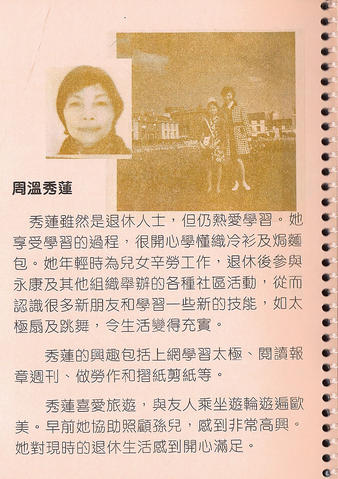 周溫秀蓮
秀蓮雖然是退休人士，但仍熱愛學習。她
享受學習的過程，很開心學懂織冷衫及焗麵
包。她年輕時為兒女辛勞工作，退休後參與
永康及其他組織舉辦的各種社區活動，從而
認識很多新朋友和學習一些新的技能，如太
極扇及跳舞，令生活變得充實。
秀蓮的興趣包括上網學習太極、閱讀報
章週刊、做勞作和摺紙剪紙等。
秀蓮喜愛旅遊，與友人乘坐遊輪遊遍歐
美。早前她協助照顧孫兒，感到非常高興。
她對現時的退休生活感到開心滿足。